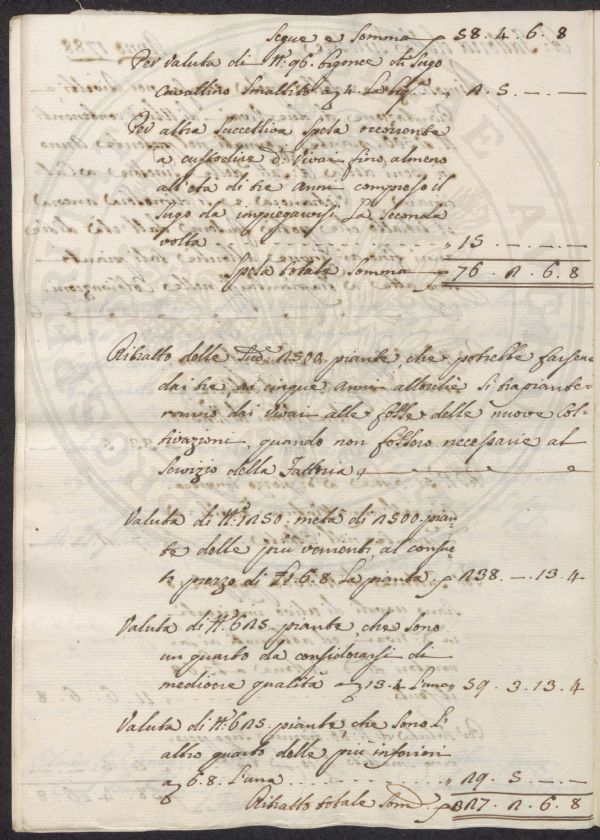 Segue e Somma 58. 4. 6. 8
Per valuta di N.° 96. bigonce di Sugo
Cavallino Smaltito a 4. La big.ª " 2. 5. —. —
Per altra Successiva Spesa occorrente
a custodire d.i Vivai fino almeno
all'età di tre anni compreso il
Sugo da impiegarvisi La Seconda
volta " 15 —. —. —
Spesa totale Somma 76. 2. 6. 8
Ritratto delle Sud.e 2500. piante, che potrebbe farsene
dai tre, ai cinque anni allorchè Si trapiante-
ranno dai Vivai alle fosse delle nuove Col-
tivazioni, quando non fossero necessarie al
Servizio della Fattoria
Valuta di N.° 1250. metà di 2500. pian-
te delle più vementi, al consue
to prezzo di £1. 6. 8. La pianta 238. —. 13. 4
Valuta di N.° 625. piante, che sono
un quarto da considerarsi di
mediocre qualità a 13. 4 L'una " 59. 3. 13. 4
Valuta di N.° 625. piante, che Sono L'
altro quarto delle più inferiori
a 6. 8. L'una " 29. 5 —. —
Ritratto totale Som.a 327. 2. 6. 8